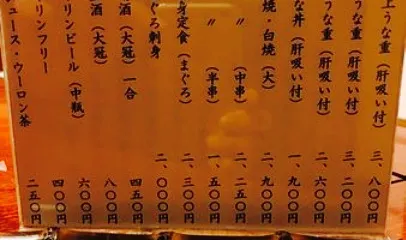 上うな重(肝吸い付) 三、八〇〇円
うな重(肝吸い付) 三、二〇〇円
うな重(肝吸い付) 二、六〇〇円
な丼(肝吸い付) 一、九〇〇円
焼・白焼(大) 二、九〇〇円
〃(中串) 二、二〇〇円
〃(半串) 一、五〇〇円
身定食(まぐろ) 二、三〇〇円
ぐろ刺身 二、〇〇〇円
酒(大冠)一合 四五〇円
酒(大冠) 八〇〇円
リンビール(中瓶) 六〇〇円
リンフリー 四〇〇円
ュース・ウーロン茶 二五〇円